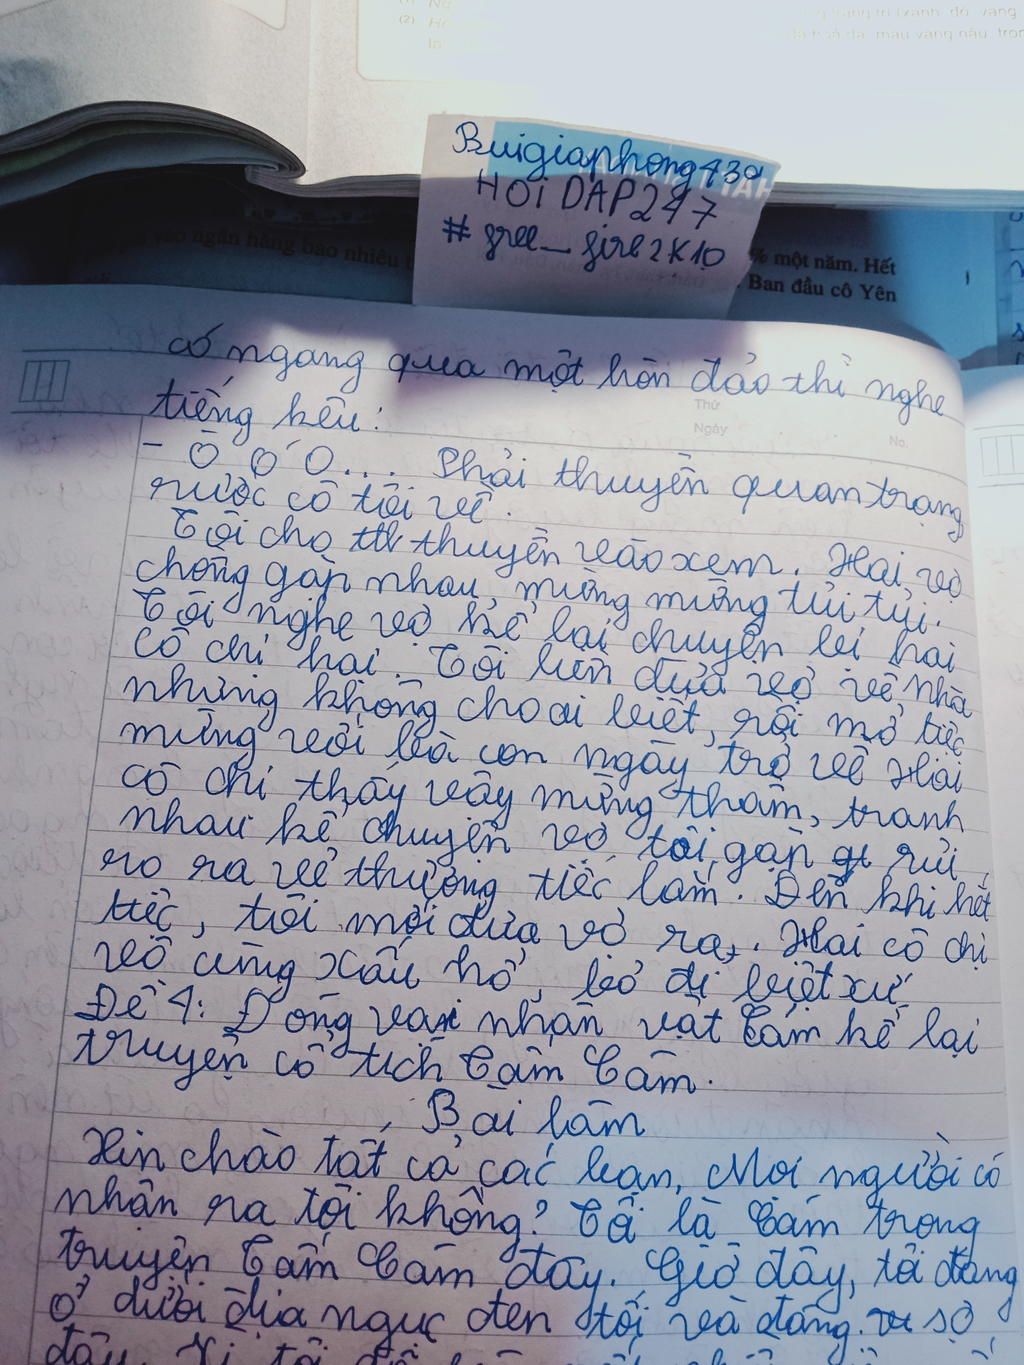 (2)
Buigiaphong439
HOI DAP 247
# free_fire2K10
vào ngân hàng bao nhiêu
% một năm. Hết
Ban đầu cô Yên
có ngang qua một hòn đảo thì nghe
Thứ
tiếng kêu:
Ngày
No.
- Ò ó O... Phải thuyền quan trạng
rước cô tôi về.
Tôi cho thuyền vào xem. Hai vợ
chồng gặp nhau, mừng mừng tủi tủi.
Tôi nghe vợ kể lại chuyện bị hai
cô chị hại. Tôi liền đưa vợ về nhà
nhưng không cho ai biết, rồi mở tiệc
mừng với bà con ngày trở về Hai
cô chị thấy vậy mừng thầm, tranh
nhau kể chuyện vợ tôi gặp rủi
ro ra vẻ thương tiếc lắm. Đến khi hết
tiệc, tôi mới đưa vợ ra. Hai cô chị
vô cùng xấu hổ, bỏ đi biệt xứ.
Đề 4: Đóng vai nhận vật Cám kể lại
truyện cổ tích Tấm Cám.
Bài làm
Xin chào tất cả các bạn, Mọi người có
nhận ra tôi không? Tôi là Cám trong
truyện Tấm Cám đây. Giờ đây, tôi đang
ở dưới địa ngục đen tối và đáng sợ
đây. Vì tôi đã